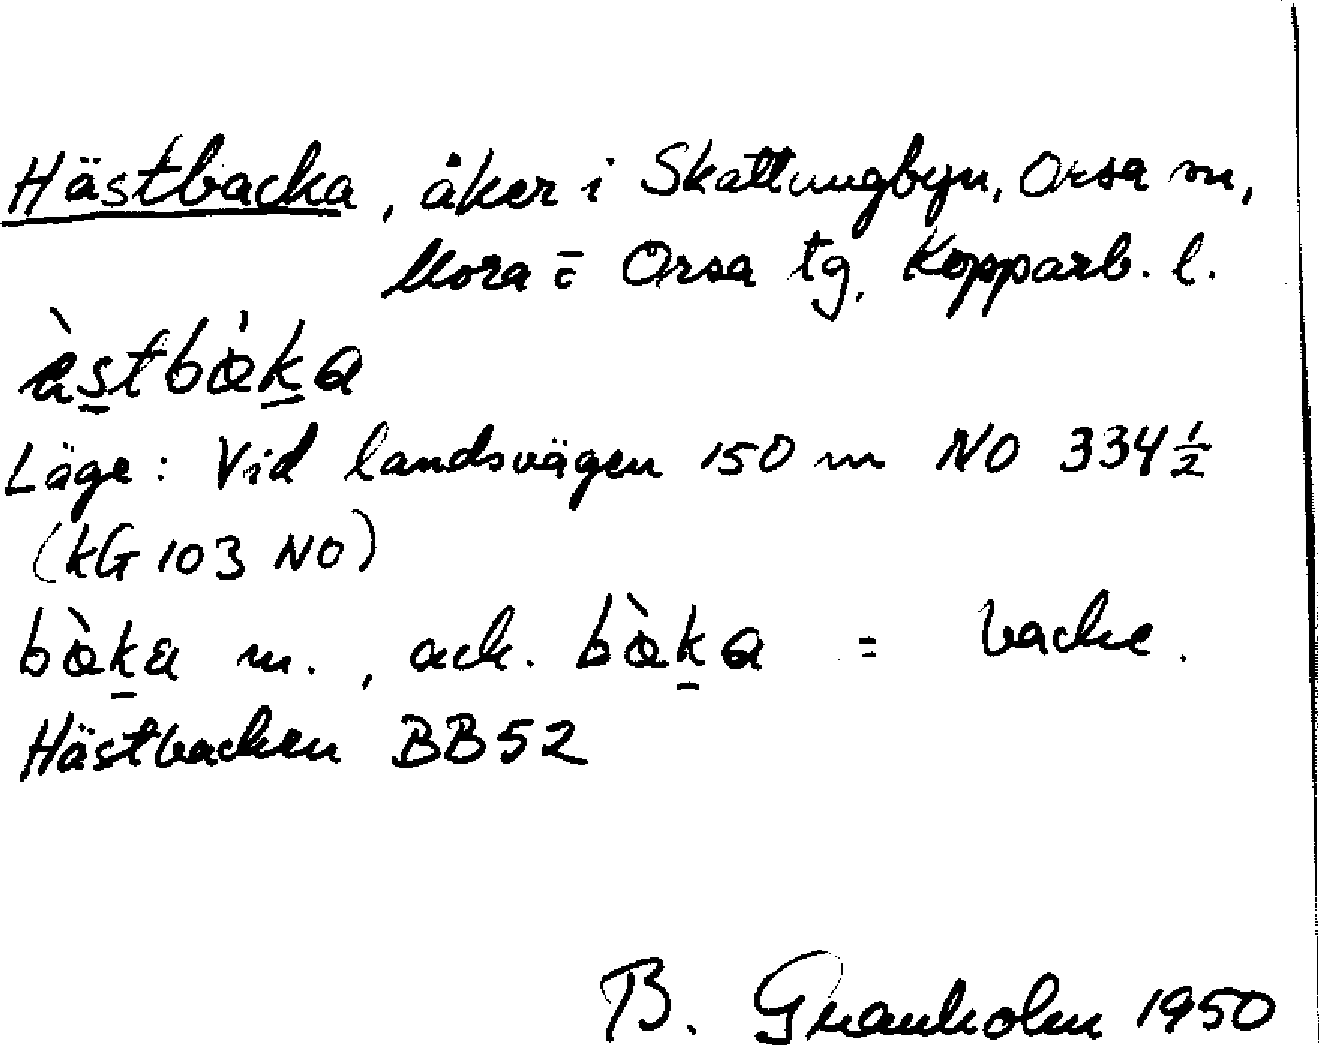 Hästbacka, åker i Skattungbyn, Orsa sn,
Mora o Orsa tg, Kopparb. l.
àstbàka
Läge: Vid landsvägen 150 m NO 334 ½
(kG 103 NO)
bàka m., ack. bàka = backe.
Hästbacken BB52
B. Granholm 1950